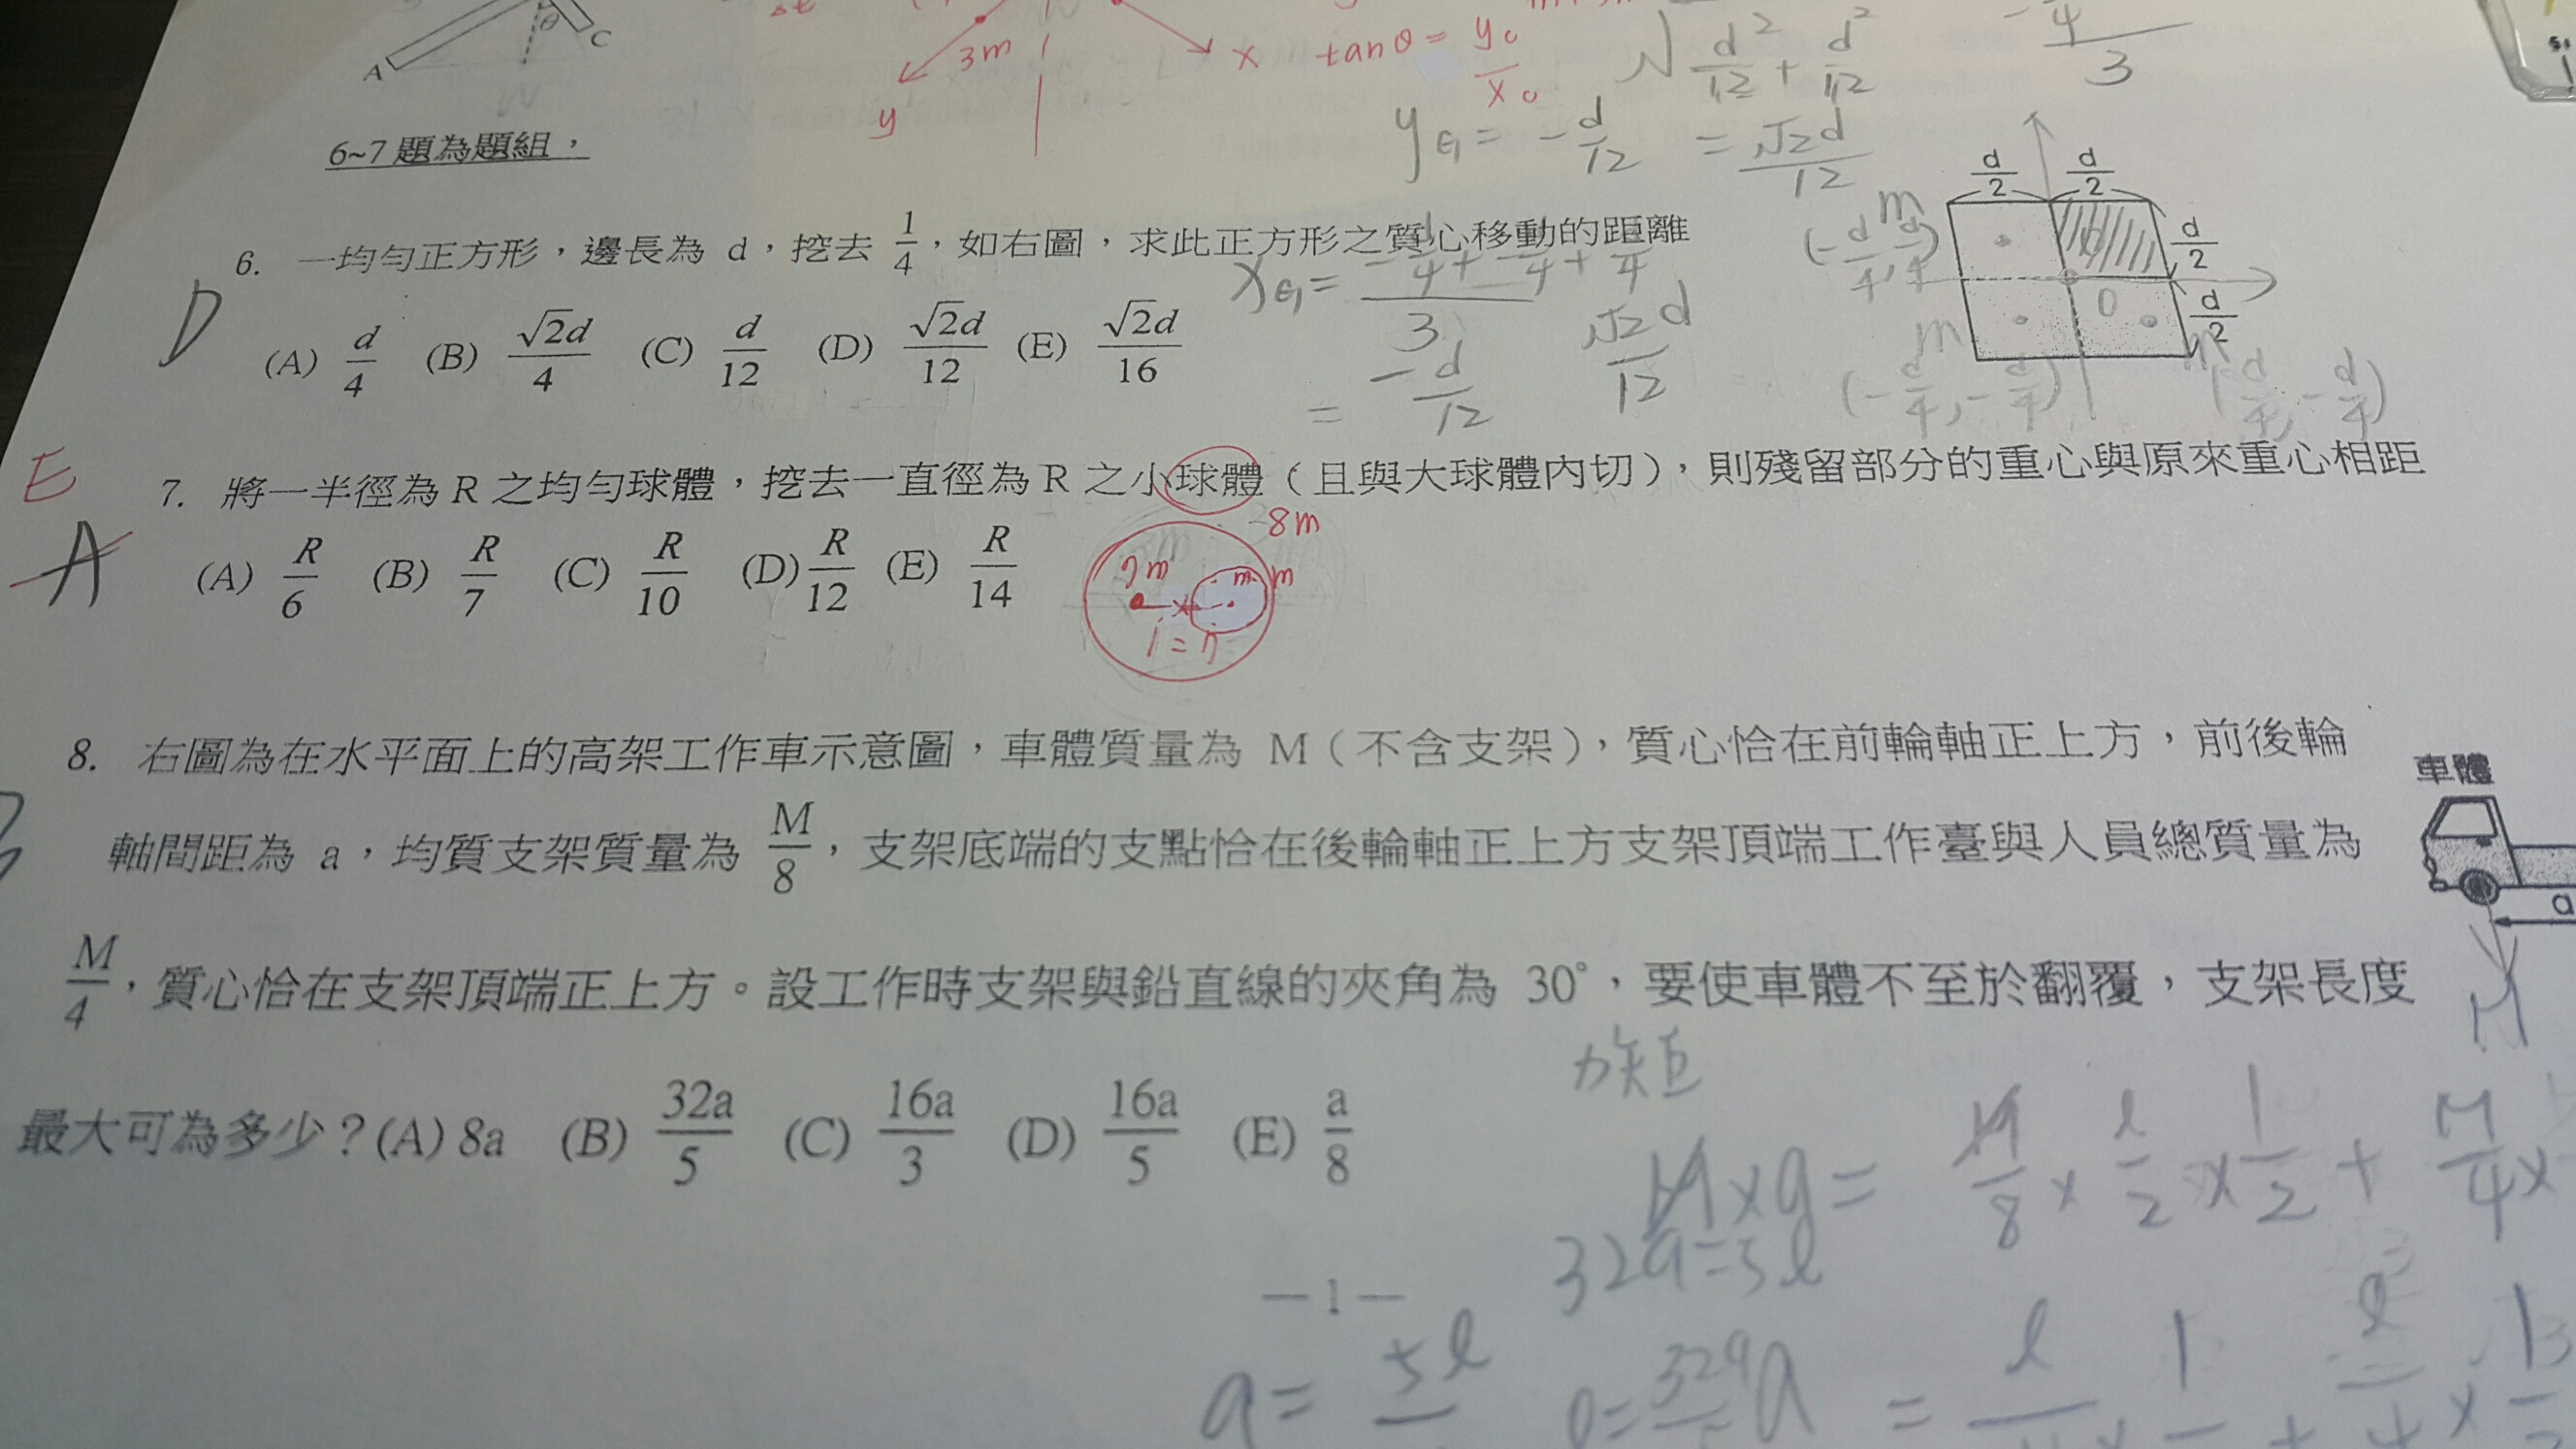 A
θ
C
3m
y
x
tanθ = y₀/x₀
√(d²/12 + d²/12)
y_G = -d/12 = √2d/12
3
6~7 題為題組，
d/2 d/2
d/2
d/2
0
m
(-d/4, d/4)
m
(-d/4, -d/4)
(d/4, -d/4)
D
6. 一均勻正方形，邊長為 d，挖去 1/4，如右圖，求此正方形之質心移動的距離
(A) d/4 (B) √2d/4 (C) d/12 (D) √2d/12 (E) √2d/16
x_G = (-d/4 + -d/4 + d/4)/3
= -d/12
√2d/12
E
A
7. 將一半徑為 R 之均勻球體，挖去一直徑為 R 之小球體（且與大球體內切），則殘留部分的重心與原來重心相距
(A) R/6 (B) R/7 (C) R/10 (D) R/12 (E) R/14
8m
7m
m
m
1=7
8. 右圖為在水平面上的高架工作車示意圖，車體質量為 M（不含支架），質心恰在前輪軸正上方，前後輪
軸間距為 a，均質支架質量為 M/8，支架底端的支點恰在後輪軸正上方支架頂端工作臺與人員總質量為
M/4，質心恰在支架頂端正上方。設工作時支架與鉛直線的夾角為 30°，要使車體不至於翻覆，支架長度
最大可為多少？(A) 8a (B) 32a/5 (C) 16a/3 (D) 16a/5 (E) a/8
車體
a
M
力矩
M×a = M/8 × l/2 × 1/2 + M/4 ×
32a=5l
—1—
a = 5l